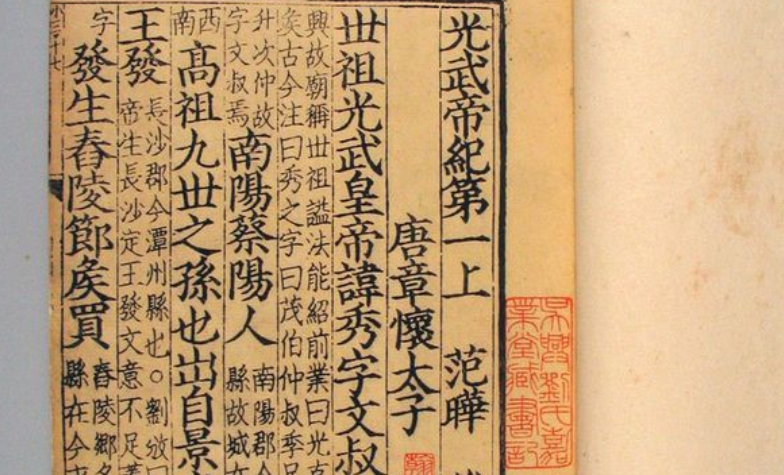 光武帝紀第一上 范曄
唐章懷太子
世祖光武皇帝諱秀字文叔
興故廟稱世祖謚法能紹前業曰光克
矦古今注曰秀之字曰茂伯仲叔季兄
升次仲故
字文叔焉
南陽蔡陽人
南陽郡今
縣故城在
西
南
高祖九世之孫也出自景
王發
長沙郡今潭州縣也○劉攽曰
帝生長沙定王發文意不足蓋
字
發生舂陵節矦買
舂陵鄉名
縣在今
吳興劉氏嘉
業堂藏書記